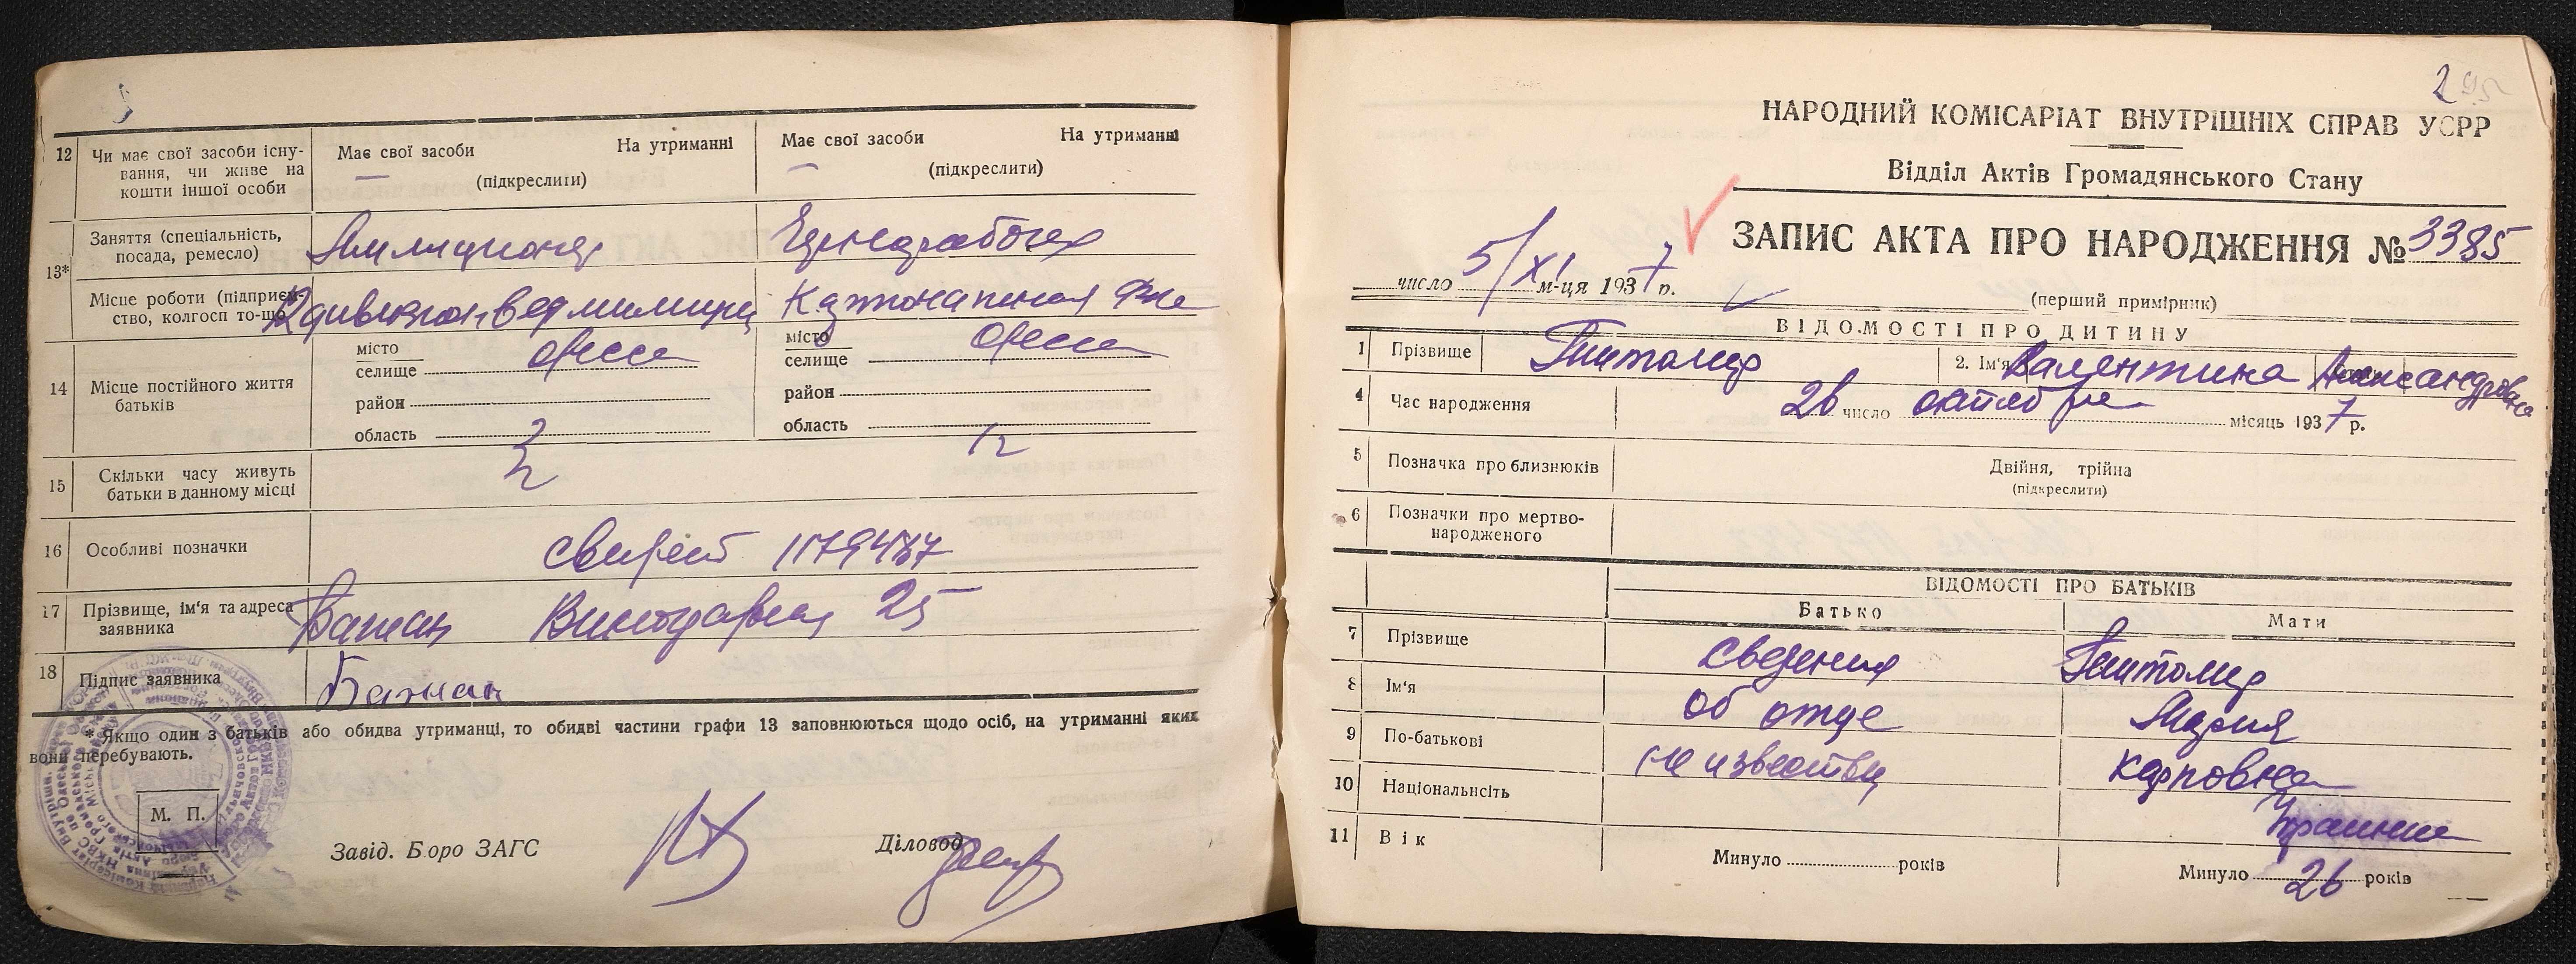 12 Чи має свої засоби існу-
вання, чи живе на
кошти іншої особи
Має свої засоби На утриманні
(підкреслити)
Має свої засоби На утриманні
(підкреслити)
13*
Заняття (спеціальність,
посада, ремесло)
Милиционер
Чернорабочая
Місце роботи (підприєм-
ство, колгосп то-що)
14 Місце постійного життя
батьків
місто
селище Одесса
район
область
місто
селище Одесса
район
область
15 Скільки часу живуть
батьки в данному місці
12
16 Особливі позначки
1179437
17 Прізвище, ім'я та адреса
заявника
Бажан 25
18 Підпис заявника
Бажан
* Якщо один з батьків або обидва утриманці, то обидві частини графи 13 заповнюються щодо осіб, на утриманні яких
вони перебувають.
М. П.
Завід. Бюро ЗАГС
Діловод
2
НАРОДНИЙ КОМІСАРІАТ ВНУТРІШНІХ СПРАВ УСРР
Відділ Актів Громадянського Стану
ЗАПИС АКТА ПРО НАРОДЖЕННЯ № 3385
число 5/XI м-ця 1937 р.
(перший примірник)
ВІДОМОСТІ ПРО ДИТИНУ
1 Прізвище Житомир 2. Ім'я Валентина Александровна
4 Час народження 26 число октября місяць 1937 р.
5 Позначка про близнюків
Двійня, трійна
(підкреслити)
6 Позначки про мертво-
народженого
ВІДОМОСТІ ПРО БАТЬКІВ
Батько Мати
7 Прізвище сведения Житомир
8 Ім'я об отце Мария
9 По-батькові не известны Карповна
10 Національність
11 Вік Минуло років Минуло 26 років